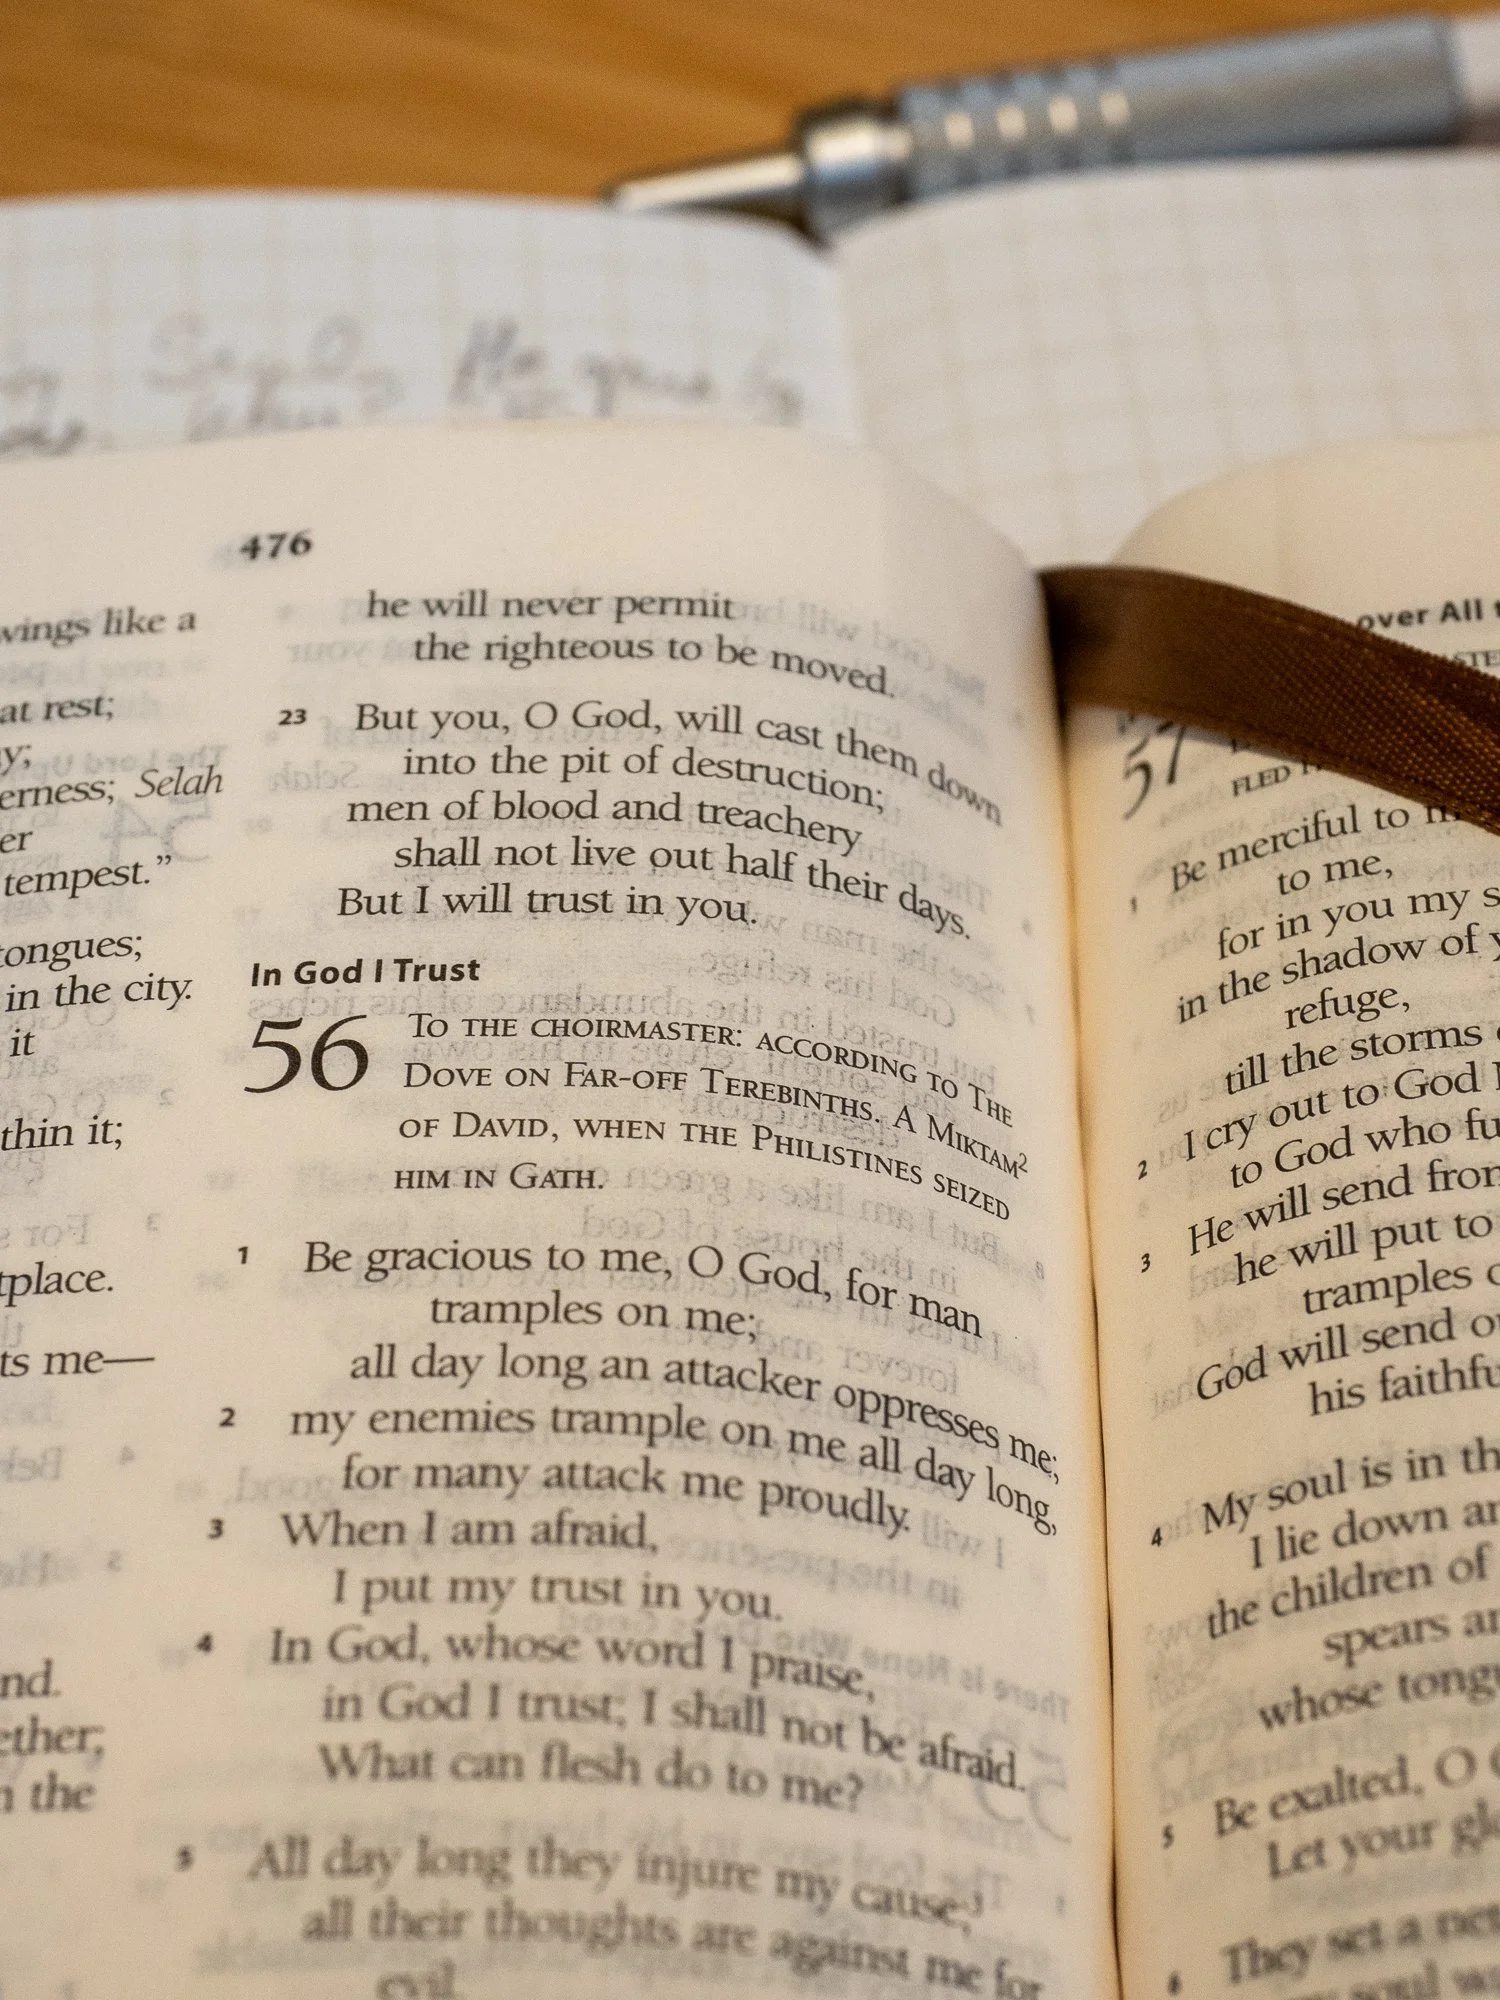 He
476
wings like a
at rest;
y;
erness; Selah
er
tempest.”
tongues;
in the city.
it
thin it;
tplace.
ts me—
nd.
ether;
n the
he will never permit
the righteous to be moved.
23 But you, O God, will cast them down
into the pit of destruction;
men of blood and treachery
shall not live out half their days.
But I will trust in you.
In God I Trust
56 To the choirmaster: according to The
Dove on Far-off Terebinths. A Miktam2
of David, when the Philistines seized
him in Gath.
1 Be gracious to me, O God, for man
tramples on me;
all day long an attacker oppresses me;
2 my enemies trample on me all day long,
for many attack me proudly.
3 When I am afraid,
I put my trust in you.
4 In God, whose word I praise,
in God I trust; I shall not be afraid.
What can flesh do to me?
5 All day long they injure my cause;3
all their thoughts are against me for
evil.
over All t
57
fled
1 Be merciful to m
to me,
for in you my s
in the shadow of y
refuge,
till the storms
2 I cry out to God
to God who fu
3 He will send from
he will put to
tramples o
God will send o
his faithfu
4 My soul is in th
I lie down a
the children of
spears a
whose tongu
5 Be exalted, O
Let your glo
6 They set a net
my soul w